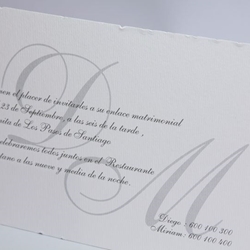 D M
nen el placer de invitarles a su enlace matrimonial
23 de Septiembre, a las seis de la tarde ,
mita de Les Pases de Santiago
elebraremos todos juntos en el Restaurante
tano a las nueve y media de la noche.
Diego : 600 100 300
Miriam: 600 100 400